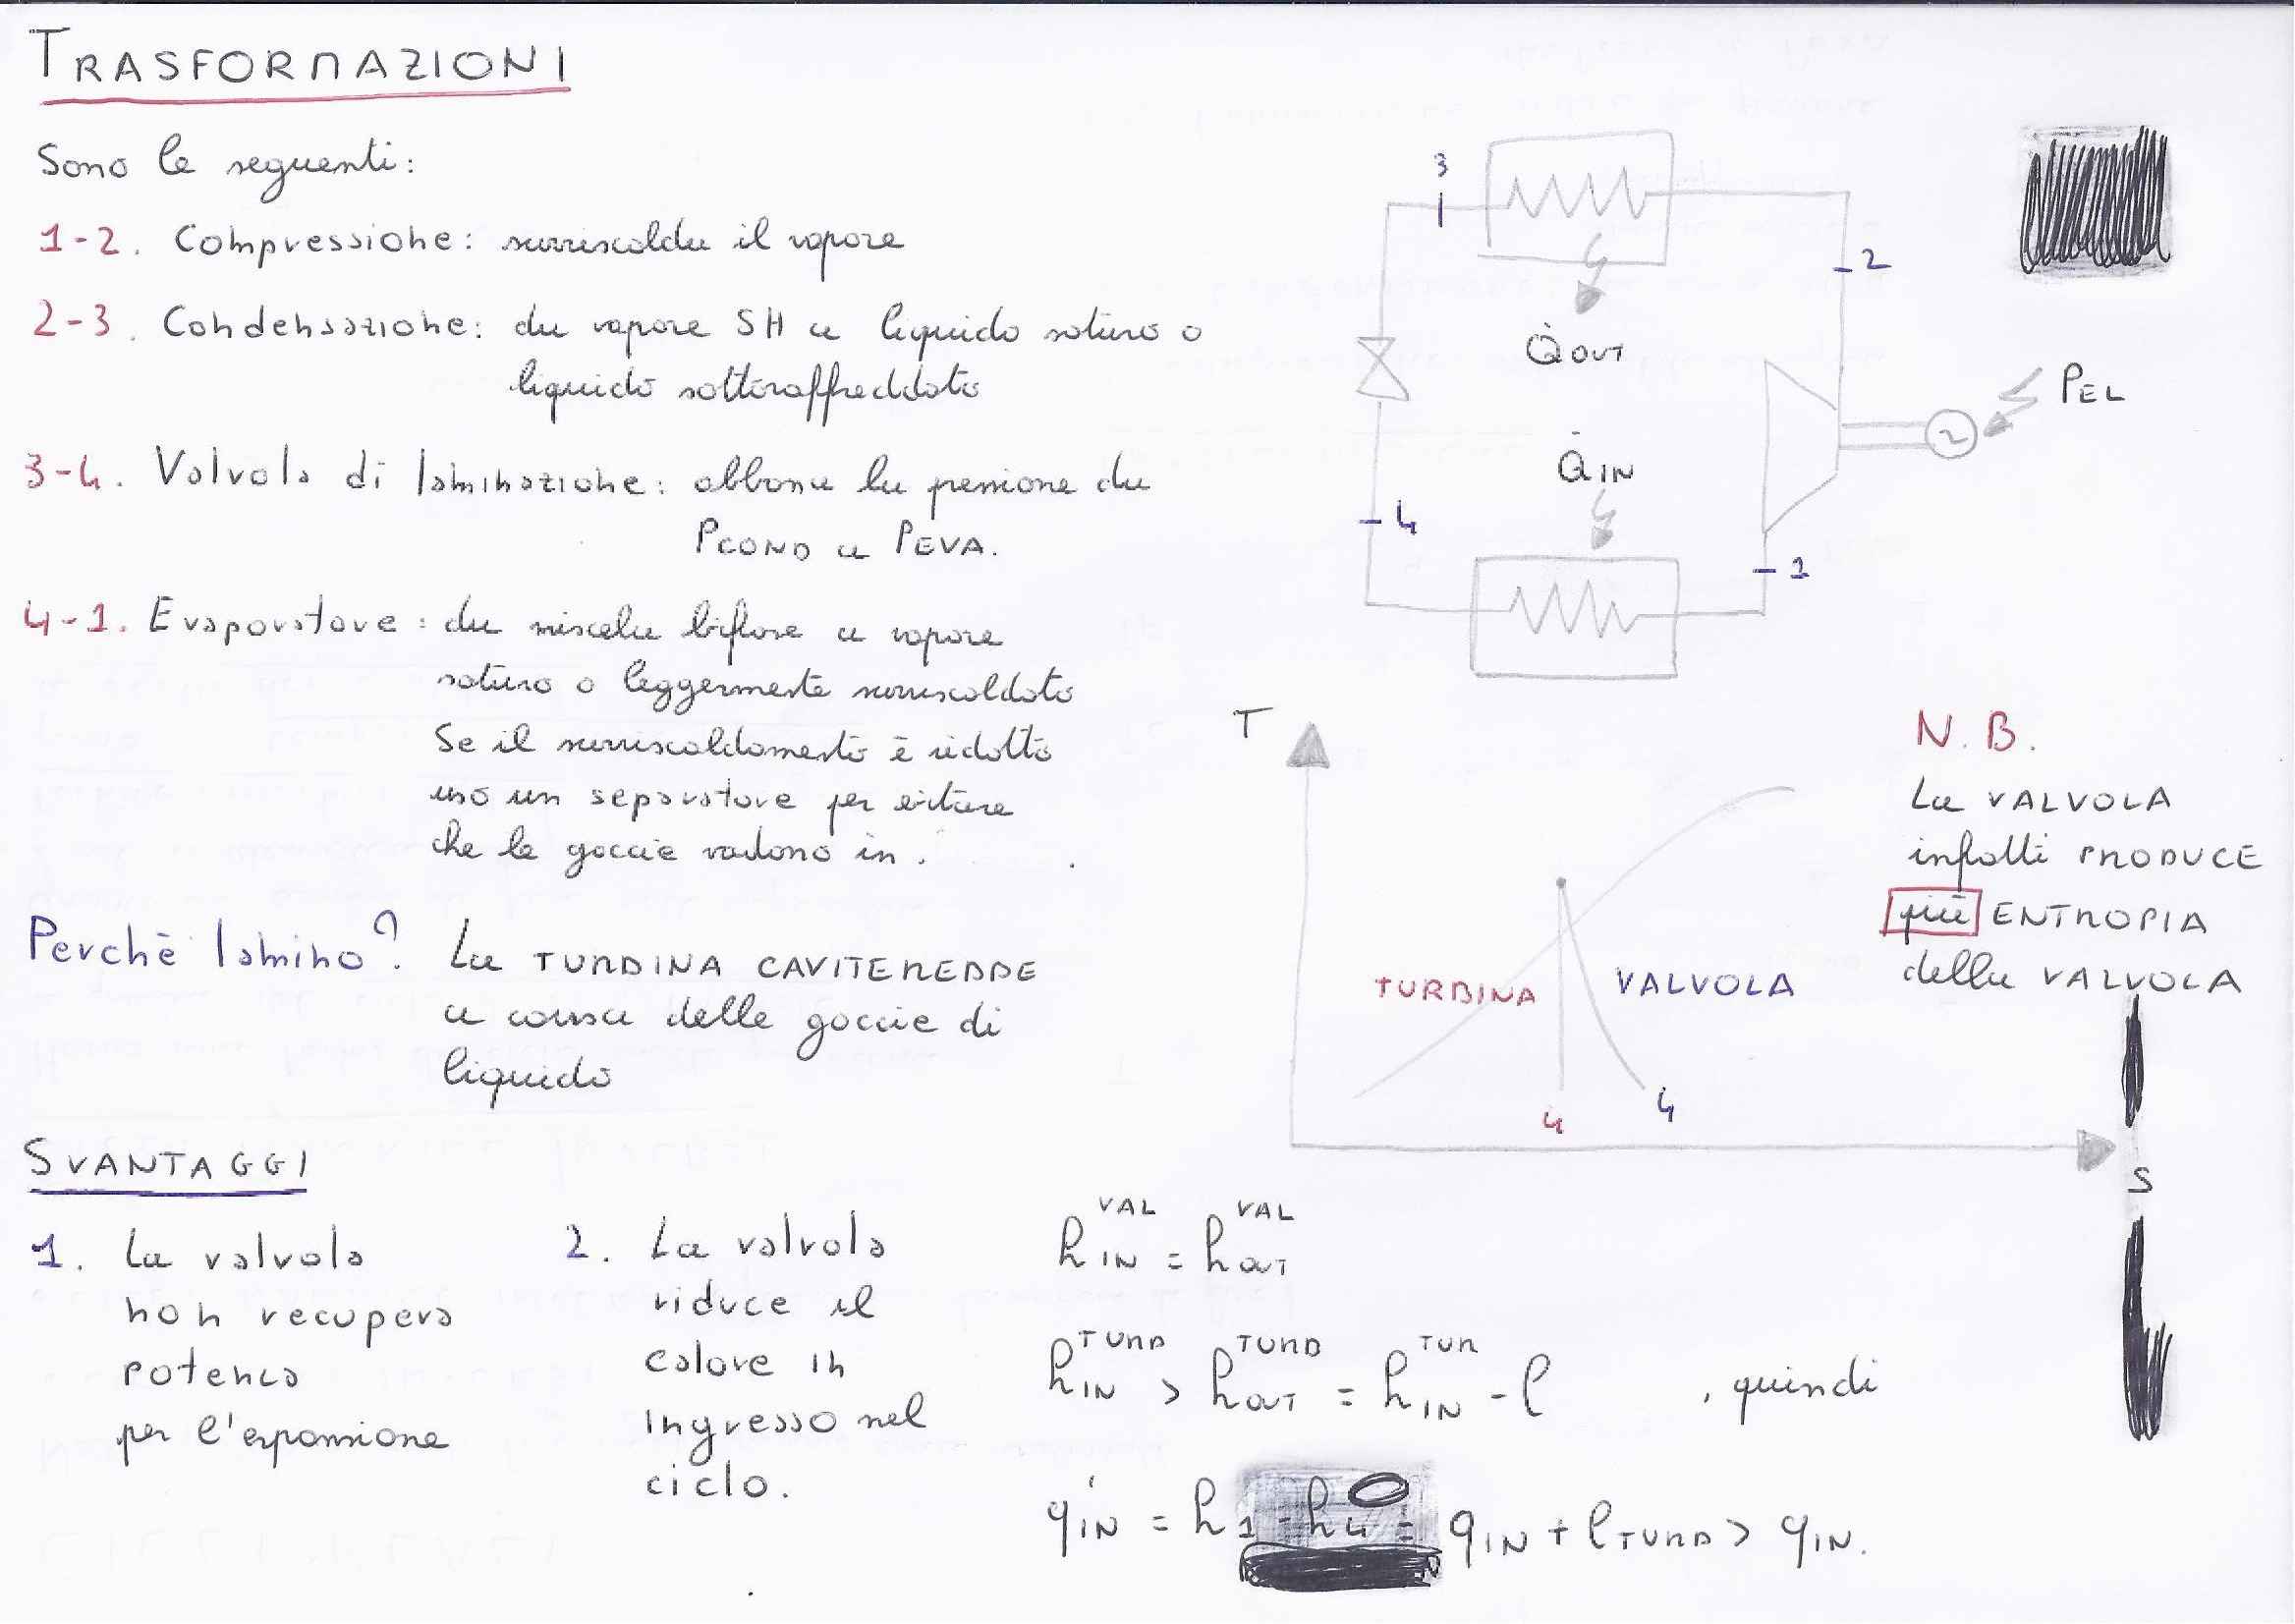 TRASFORMAZIONI
Sono le seguenti:
1-2. Compressione: surriscalda il vapore
2-3. Condensazione: da vapore SH a liquido saturo o
liquido sottoraffreddato
3-4. Valvola di laminazione: abbassa la pressione da
PCOND a PEVA.
4-1. Evaporatore: da miscela bifase a vapore
saturo o leggermente surriscaldato
Se il surriscaldamento è ridotto
uso un separatore per evitare
che le goccie vadano in .
Perchè lamino? La TURBINA CAVITEREBBE
a causa delle goccie di
liquido
SVANTAGGI
1. La valvola
non recupera
potenza
per l'espansione
2. La valvola
riduce il
calore in
ingresso nel
ciclo.
3
2
Q̇OUT
PEL
Q̇IN
4
1
T
TURBINA
VALVOLA
4
4
S
N.B.
La VALVOLA
infatti PRODUCE
più ENTROPIA
della VALVOLA
h IN VAL = h OUT VAL
h IN TURB > h OUT TURB = h IN TUR - l , quindi
q'IN = h1 - h4 = qIN + lTURB > qIN.